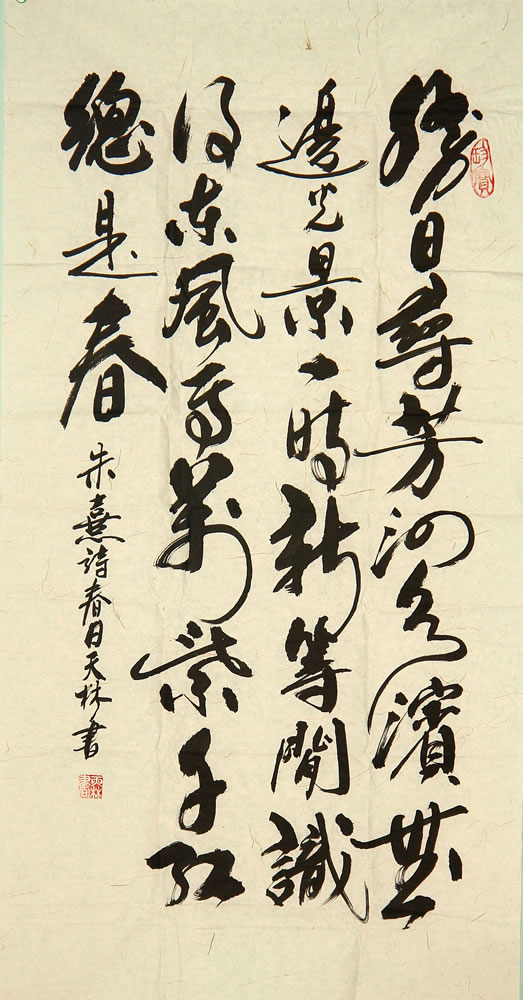 勝日尋芳泗水濱無
邊光景一時新等閒識
得東風面萬紫千紅
總是春
朱熹詩春日天林書